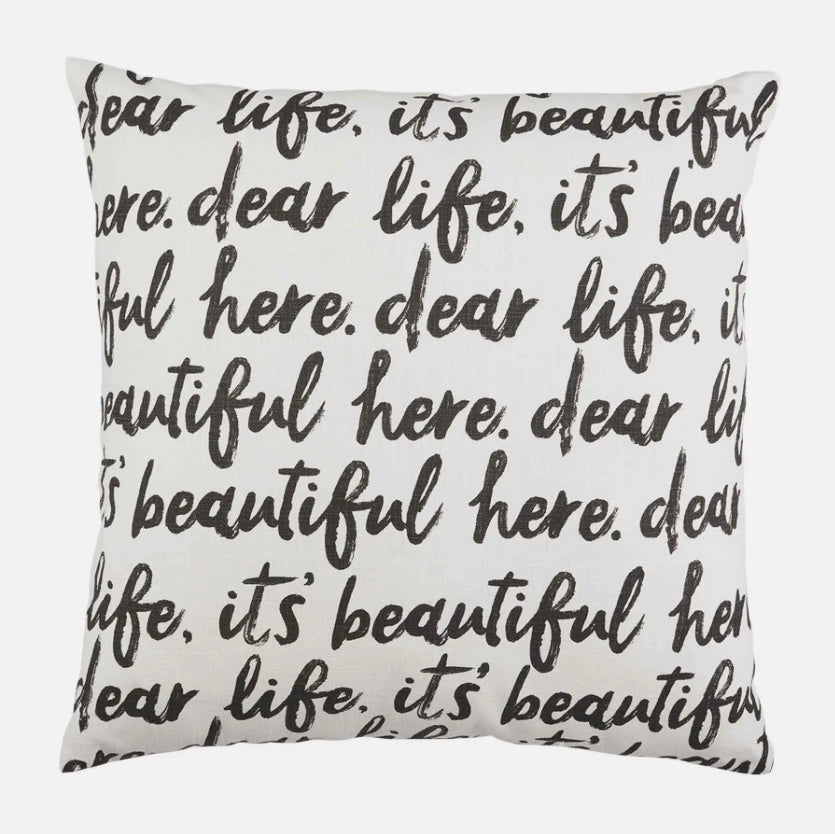 dear life, it's beautiful
here. dear life, it's beau
iful here. dear life, it
beautiful here. dear lif
it's beautiful here. dear
life, it's beautiful her
dear life, it's beautiful
ere. dear life, it's beaut